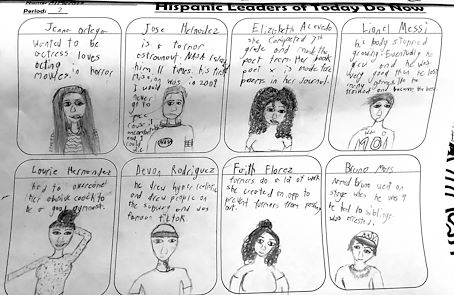 Period: 2
Hispanic Leaders of Today Do Now
Jenna ortega
wanted to be
actress loves
acting in horror
movies
Jose Hernadez
is a former
astronaut. NASA
him 11 times. his first
was in 2009
I would
never go to
space
I
and I
could
die
Elizabeth Acevedo
she completed 7th
grade and made the
poet from her book
poet x is made the
poems in her journal
Lionel Messi
his body stopped
growing. Eventually he
grew and he was
very good then he
many to
and became the best
Laurie Hernandez
had to overcome
her abusive coach to
be a good gymnast.
Devon Rodriguez
he drew hyper
and drew people on
the subway and was
famous on tiktok.
Faith Florez
farmers do a lot of work
she created an app to
prevent farmers from passing
out.
Bruno Mars
named bruno went on
stage when he was 4
he had 5 siblings.
was arrested.